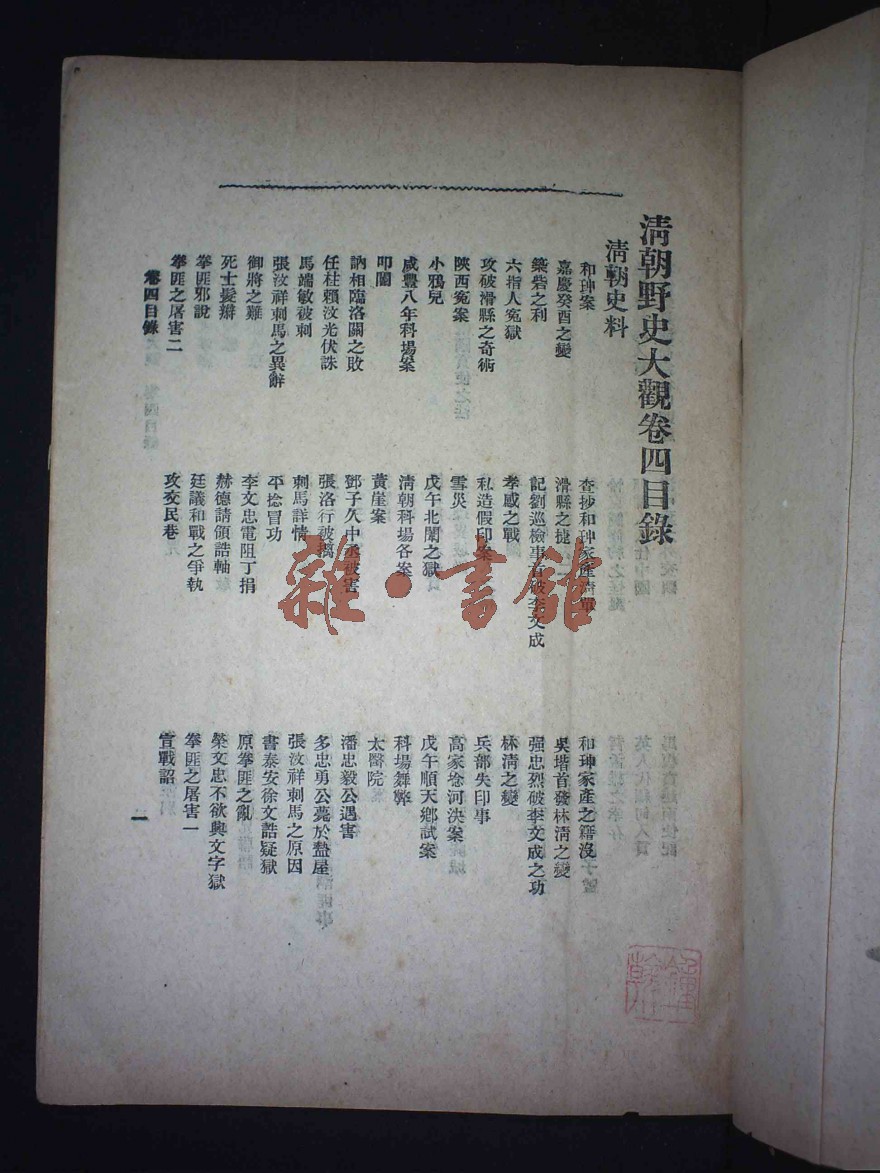 清朝野史大觀卷四目錄
清朝史料
和珅案　查抄和珅家產清單　和珅家產之籍沒
嘉慶癸酉之變　滑縣之捷　吳堦首發林清之變
築砦之利　記劉巡檢事首破李文成　强忠烈破李文成之功
六指人寃獄　孝感之戰　林清之變
攻破滑縣之奇術　私造假印案　兵部失印事
陝西寃案　雪災　高家埝河決案
小鴉兒　戊午北闈之獄　戊午順天鄉試案
咸豐八年科場案　清朝科場各案　科場舞弊
叩閽　黃崖案　太醫院
訥相臨洛關之敗　鄧子久中丞被害　潘忠毅公遇害
任柱賴汶光伏誅　張洛行被擒　多忠勇公薨於盩厔
馬端敏被刺　刺馬詳情　張汶祥刺馬之原因
張汶祥刺馬之異辭　平捻冒功　書泰安徐文誥疑獄
御將之難　李文忠電阻丁捐　原拳匪之亂
死士髮辮　赫德請領誥軸　榮文忠不欲興文字獄
拳匪邪說　廷議和戰之爭執　拳匪之屠害一
拳匪之屠害二　攻交民巷　宣戰詔
卷四目錄　一
雜·書館